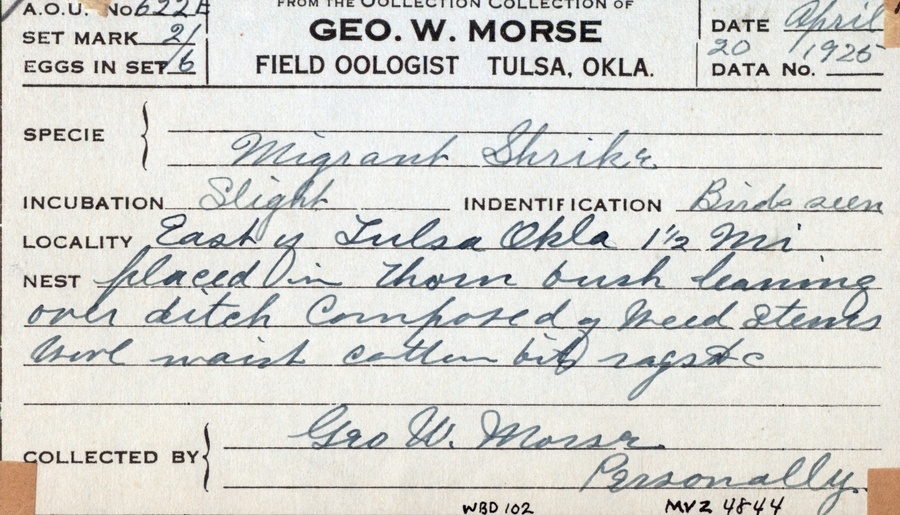 A.O.U. No 622E
SET MARK 21
EGGS IN SET 6
FROM THE OOLLECTION COLLECTION OF
GEO. W. MORSE
FIELD OOLOGIST TULSA, OKLA.
DATE April
20 1925
DATA No.
SPECIE
Migrant Shrike
INCUBATION Slight INDENTIFICATION Birds seen
LOCALITY East of Tulsa Okla 1 1/2 Mi
NEST placed in thorn bush leaning
over ditch Composed of Weed Stems
waist cotten bits rags &c
Geo W. Morse
COLLECTED BY
Personally.
WBD 102 MVZ 4844